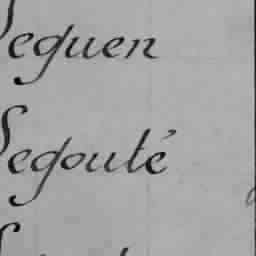 Seguen
Segouté